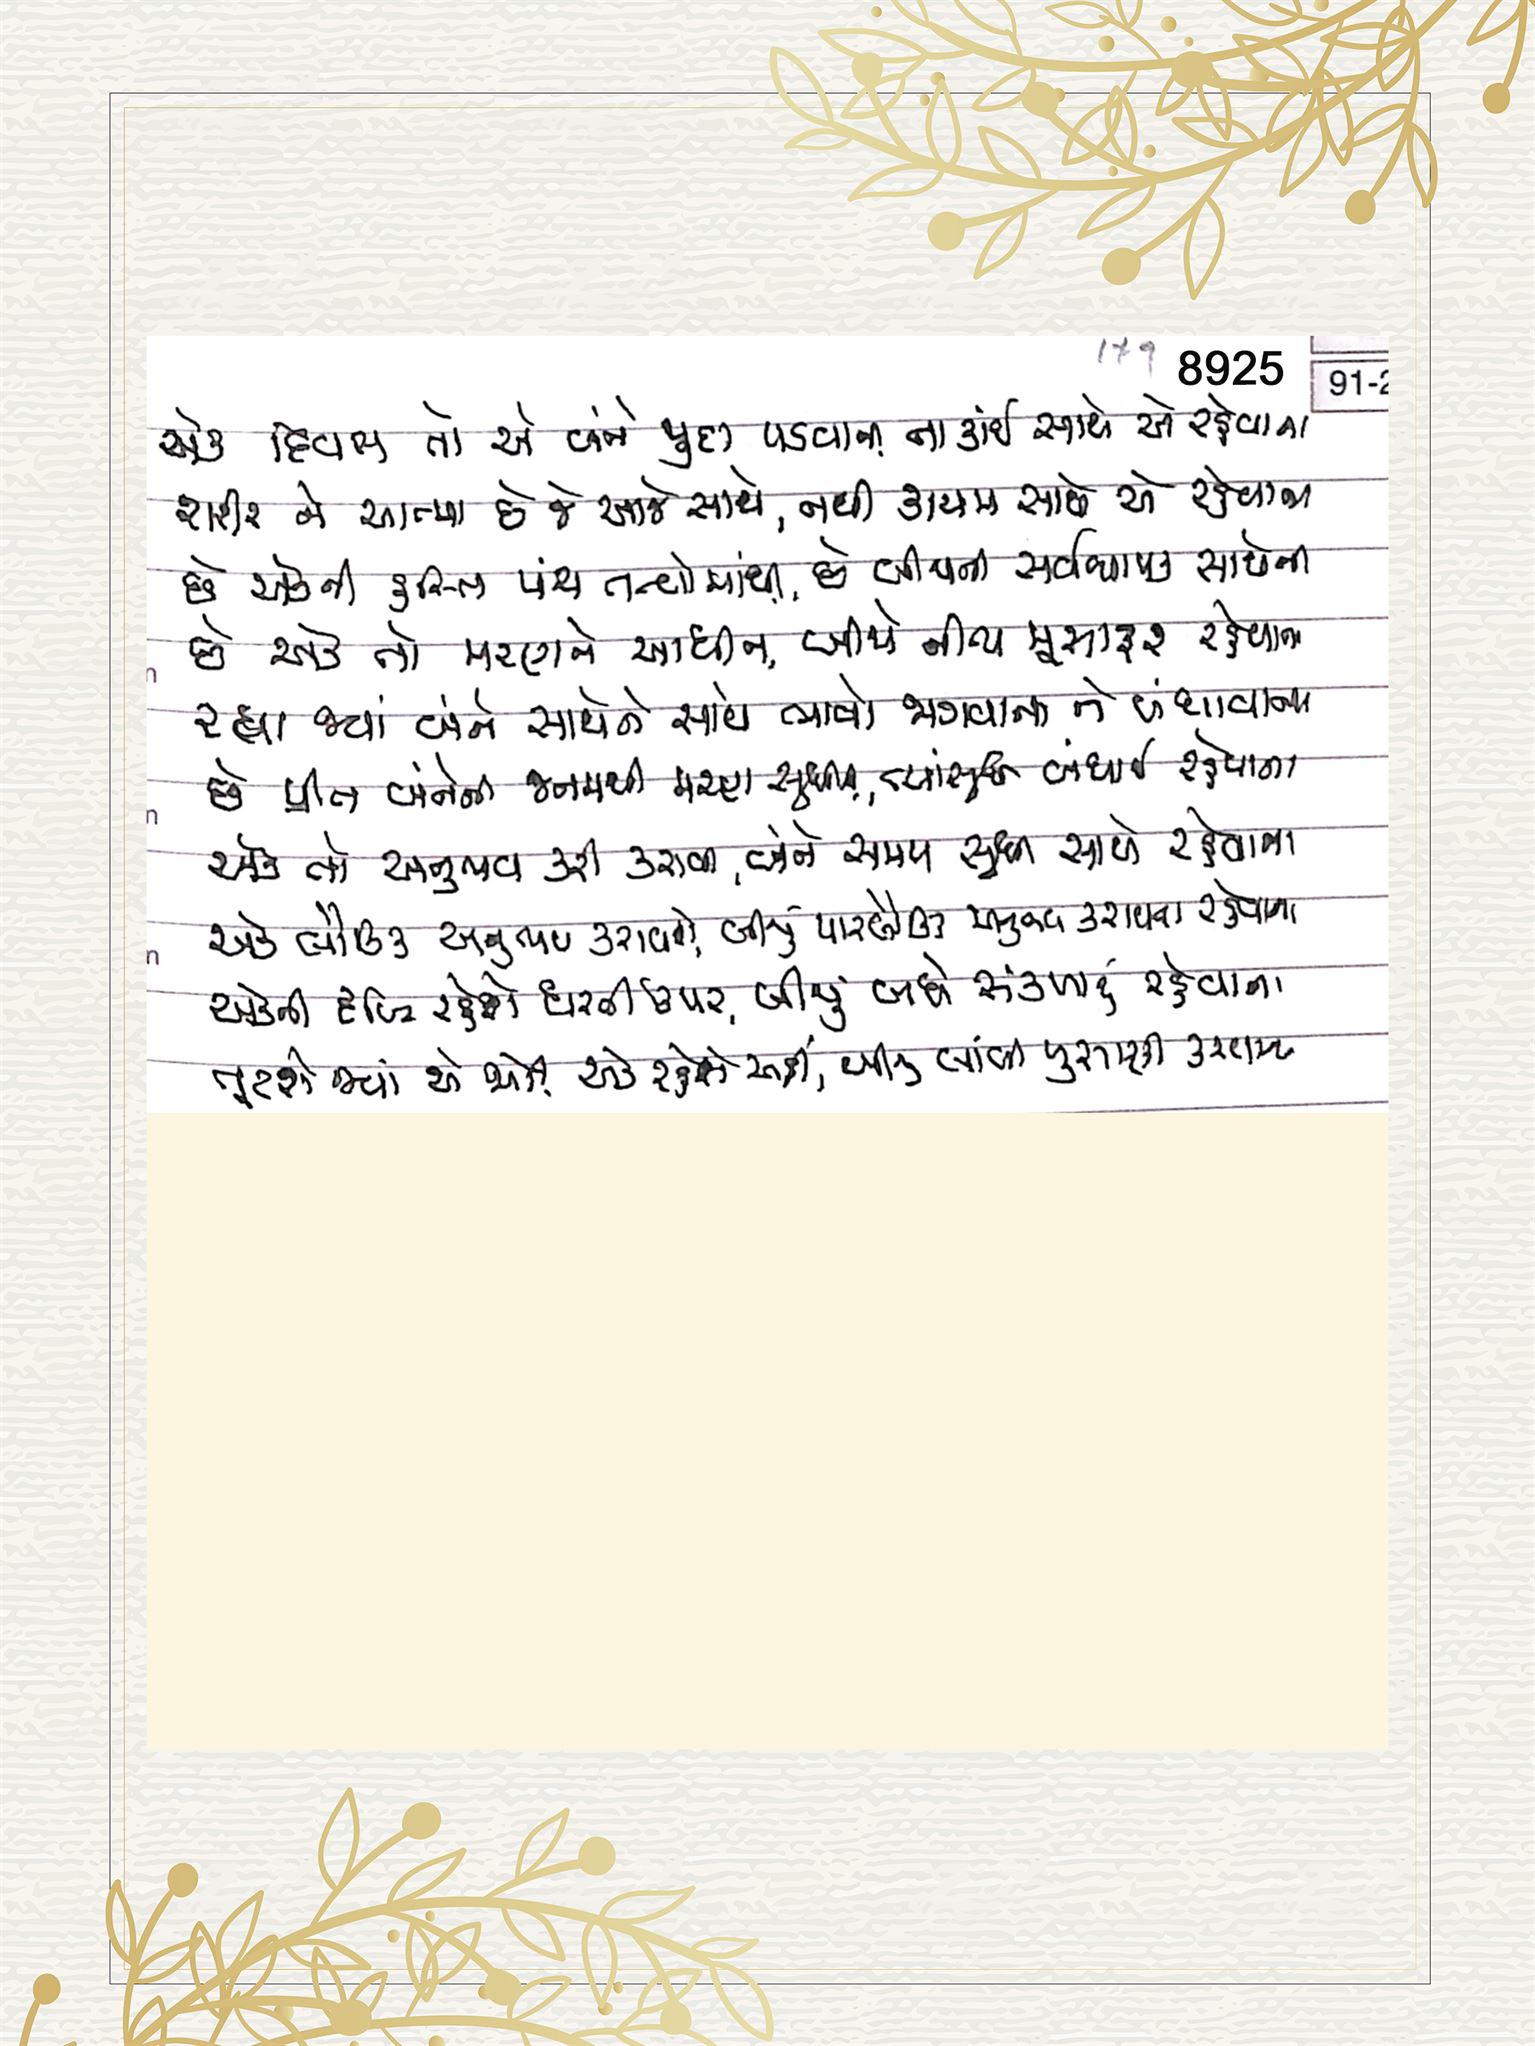 179 8925 91-2
એક દિવસ તો એ બંને જુદા પડવાના, ના કાંઈ સાથે એ રહેવાના
શરીર ને આત્મા છે જે આજે સાથે, નથી કાયમ સાથે એ રહેવાના
છે એકની હસ્તિ પંચ તત્વોમાંથી, છે બીજાની સર્વવ્યાપક સાથેની
છે એક તો મરણને આધીન, બીજો નીત્ય મુસાફર રહેવાના
રહ્યા જ્યાં બંને સાથેને સાથે
છે પ્રીત બંનેની જનમથી મરણ સુધીની, ત્યાંસુધી બંધાઈ રહેવાના
એક તો અનુભવ કરી કરાવી, બંને સમય સુધી સાથે રહેવાના
એક લૌકિક અનુભવ કરાવશે, બીજું પારલૌકિક અનુભવ કરાવતા રહેવાના
એકની દૃષ્ટિ રહેશે ધરતી ઉપર, બીજું બધે સંકળાઈ રહેવાના
તૂટશે જ્યાં એ જોડી, એક રહેશે અહીં, બીજુ લાંબી મુસાફરી કરવાના